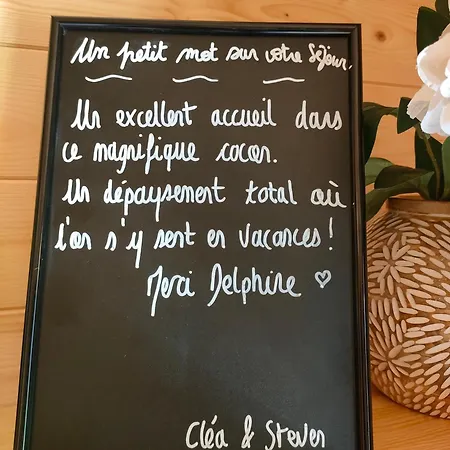 Un petit mot sur votre Séjour.
Un excellent accueil dans
ce magnifique cocon.
Un dépaysement total où
l'on s'y sent en vacances !
Merci Delphine ♡
Cléa & Steven